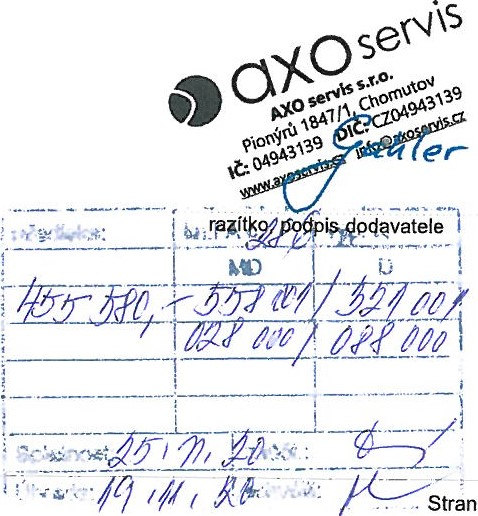 axo servis
AXO servis s.r.o.
Pionýrů 1847/1, Chomutov
IČ: 04943139 DIČ: CZ04943139
www.axoservis.cz info@axoservis.cz
razítko, podpis dodavatele
MD D
455 580,- 558 001 / 321 001
028 000 / 088 000
25. 11. 20
19. 11. 20
Stran